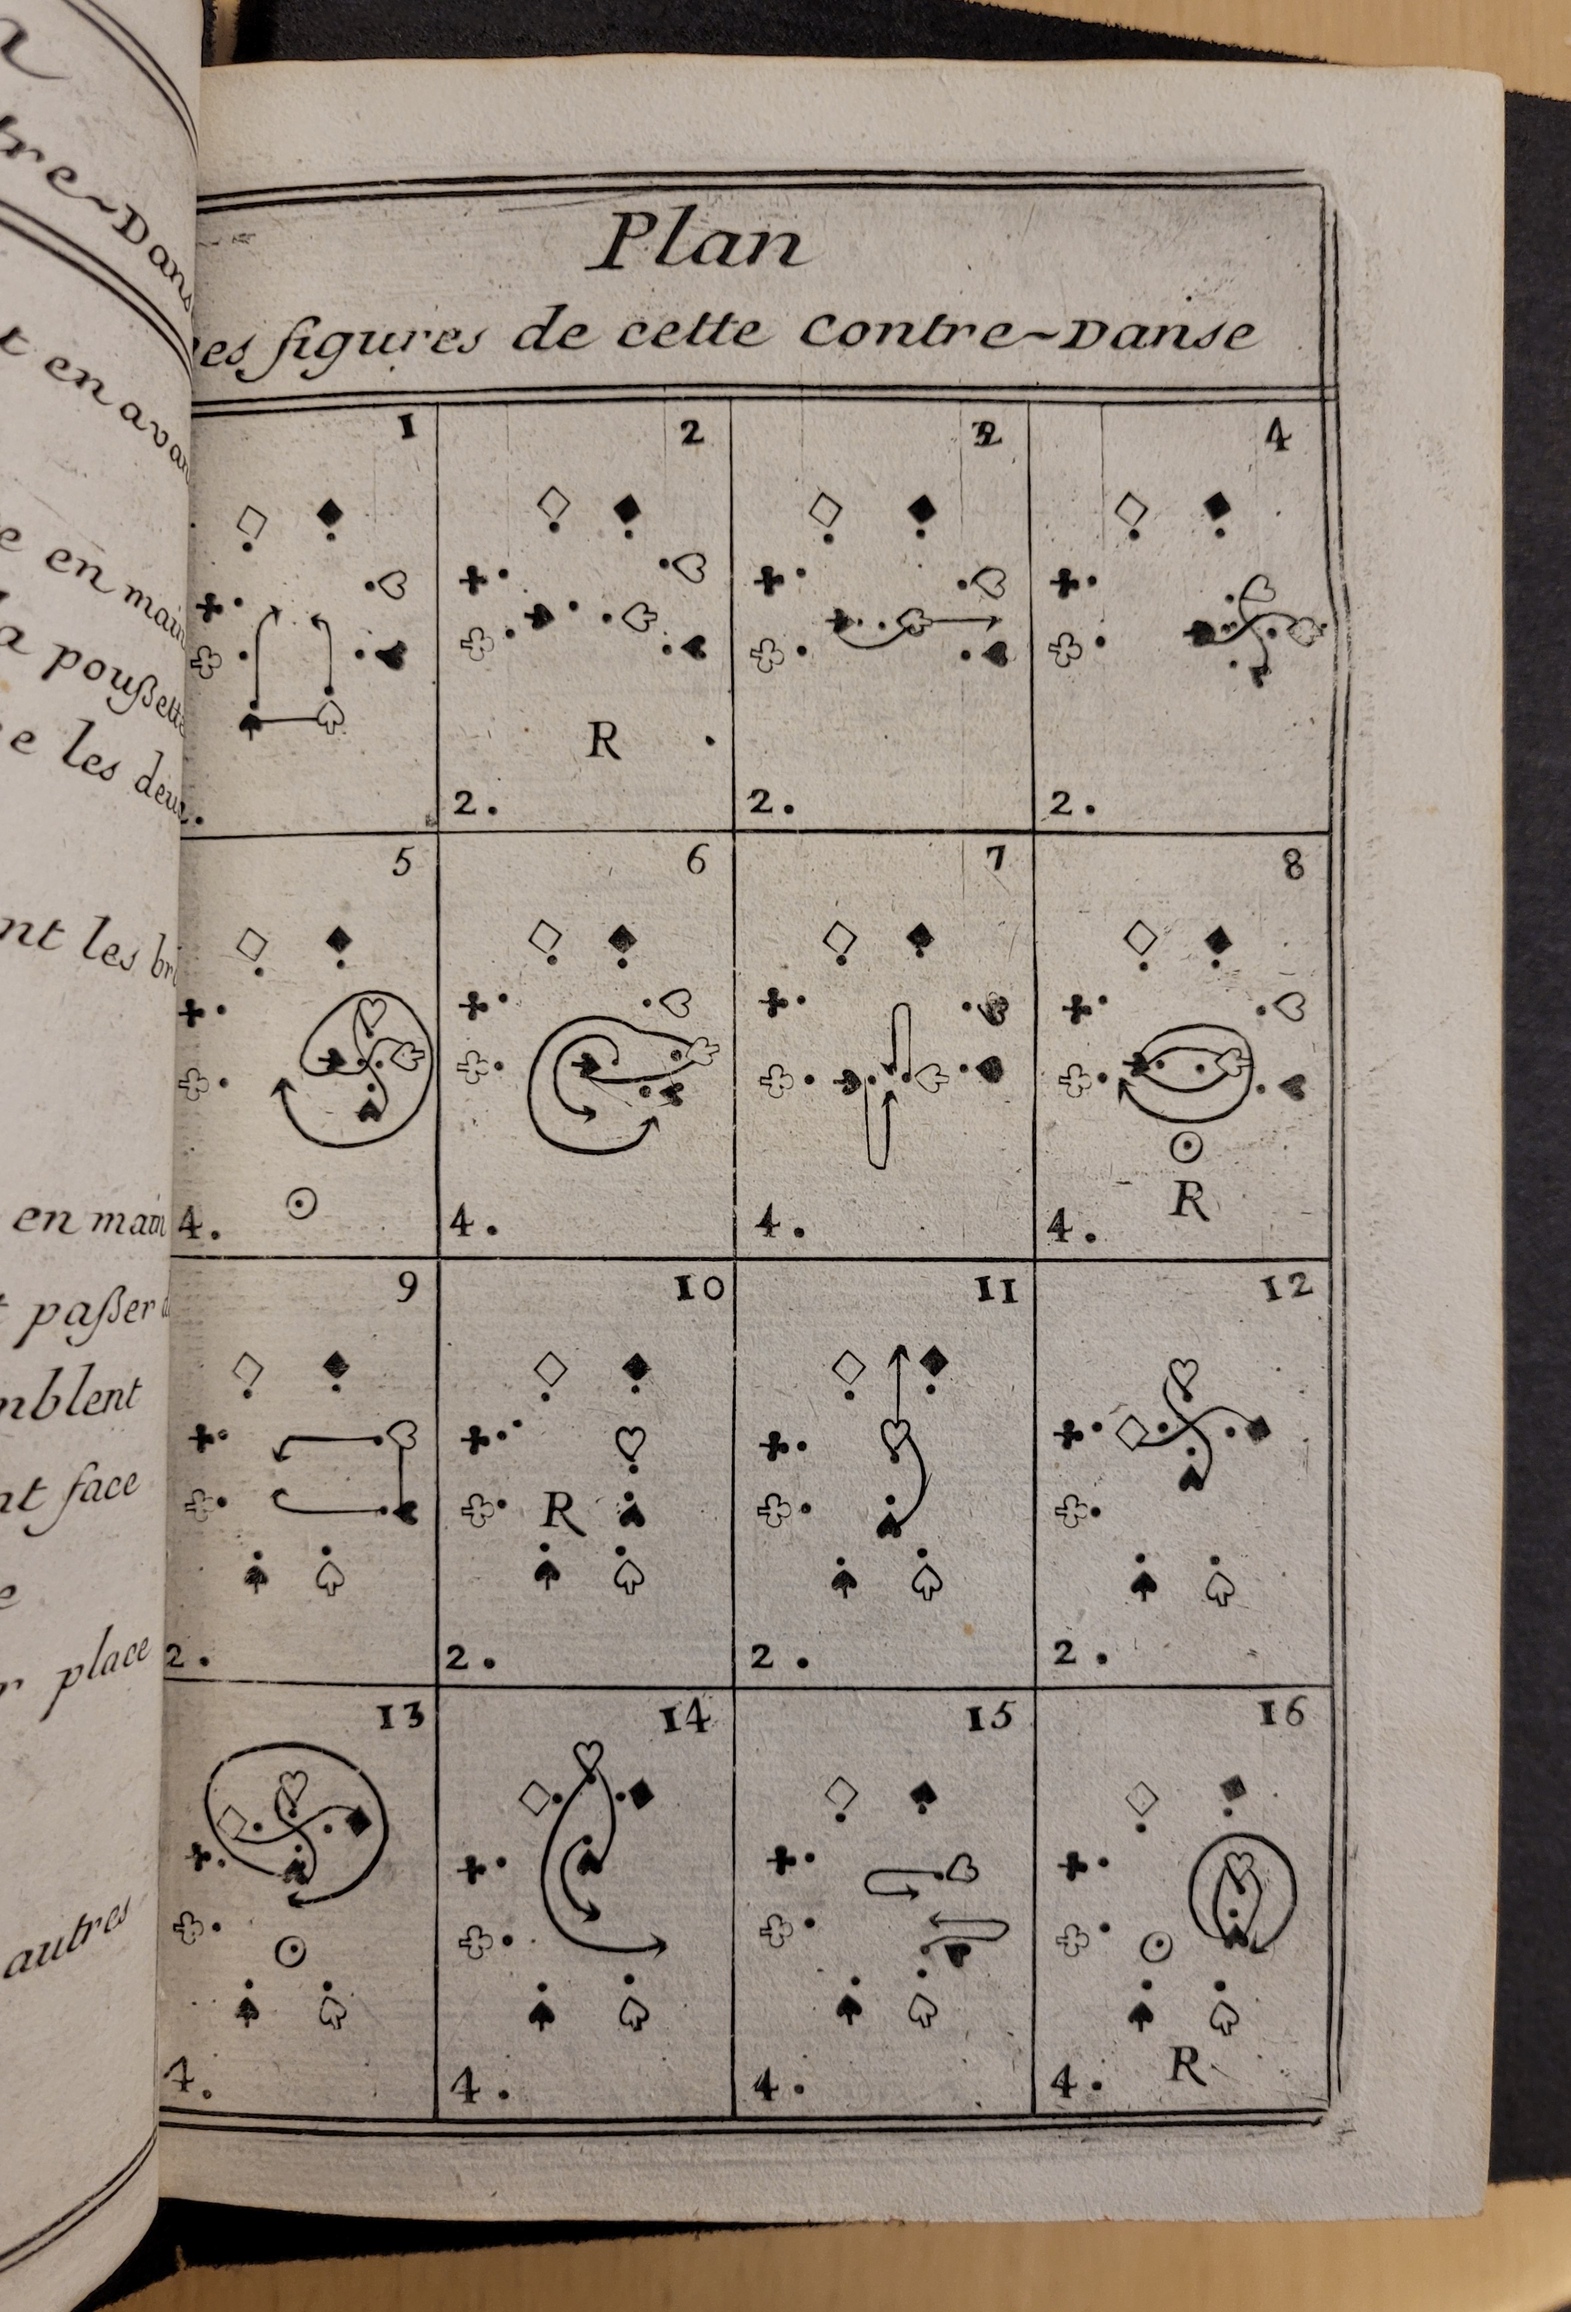 tre~Dans
t en avan
e en main
la poußette
e les deux
nt les br
en main
t paßer d
mblent
nt face
e
r place
autres
Plan
es figures de cette Contre~Danse
1 2 3 4
R
2. 2. 2.
5 6 7 8
R
4. 4. 4. 4.
9 10 11 12
R
2. 2. 2. 2.
13 14 15 16
R
4. 4. 4. 4.